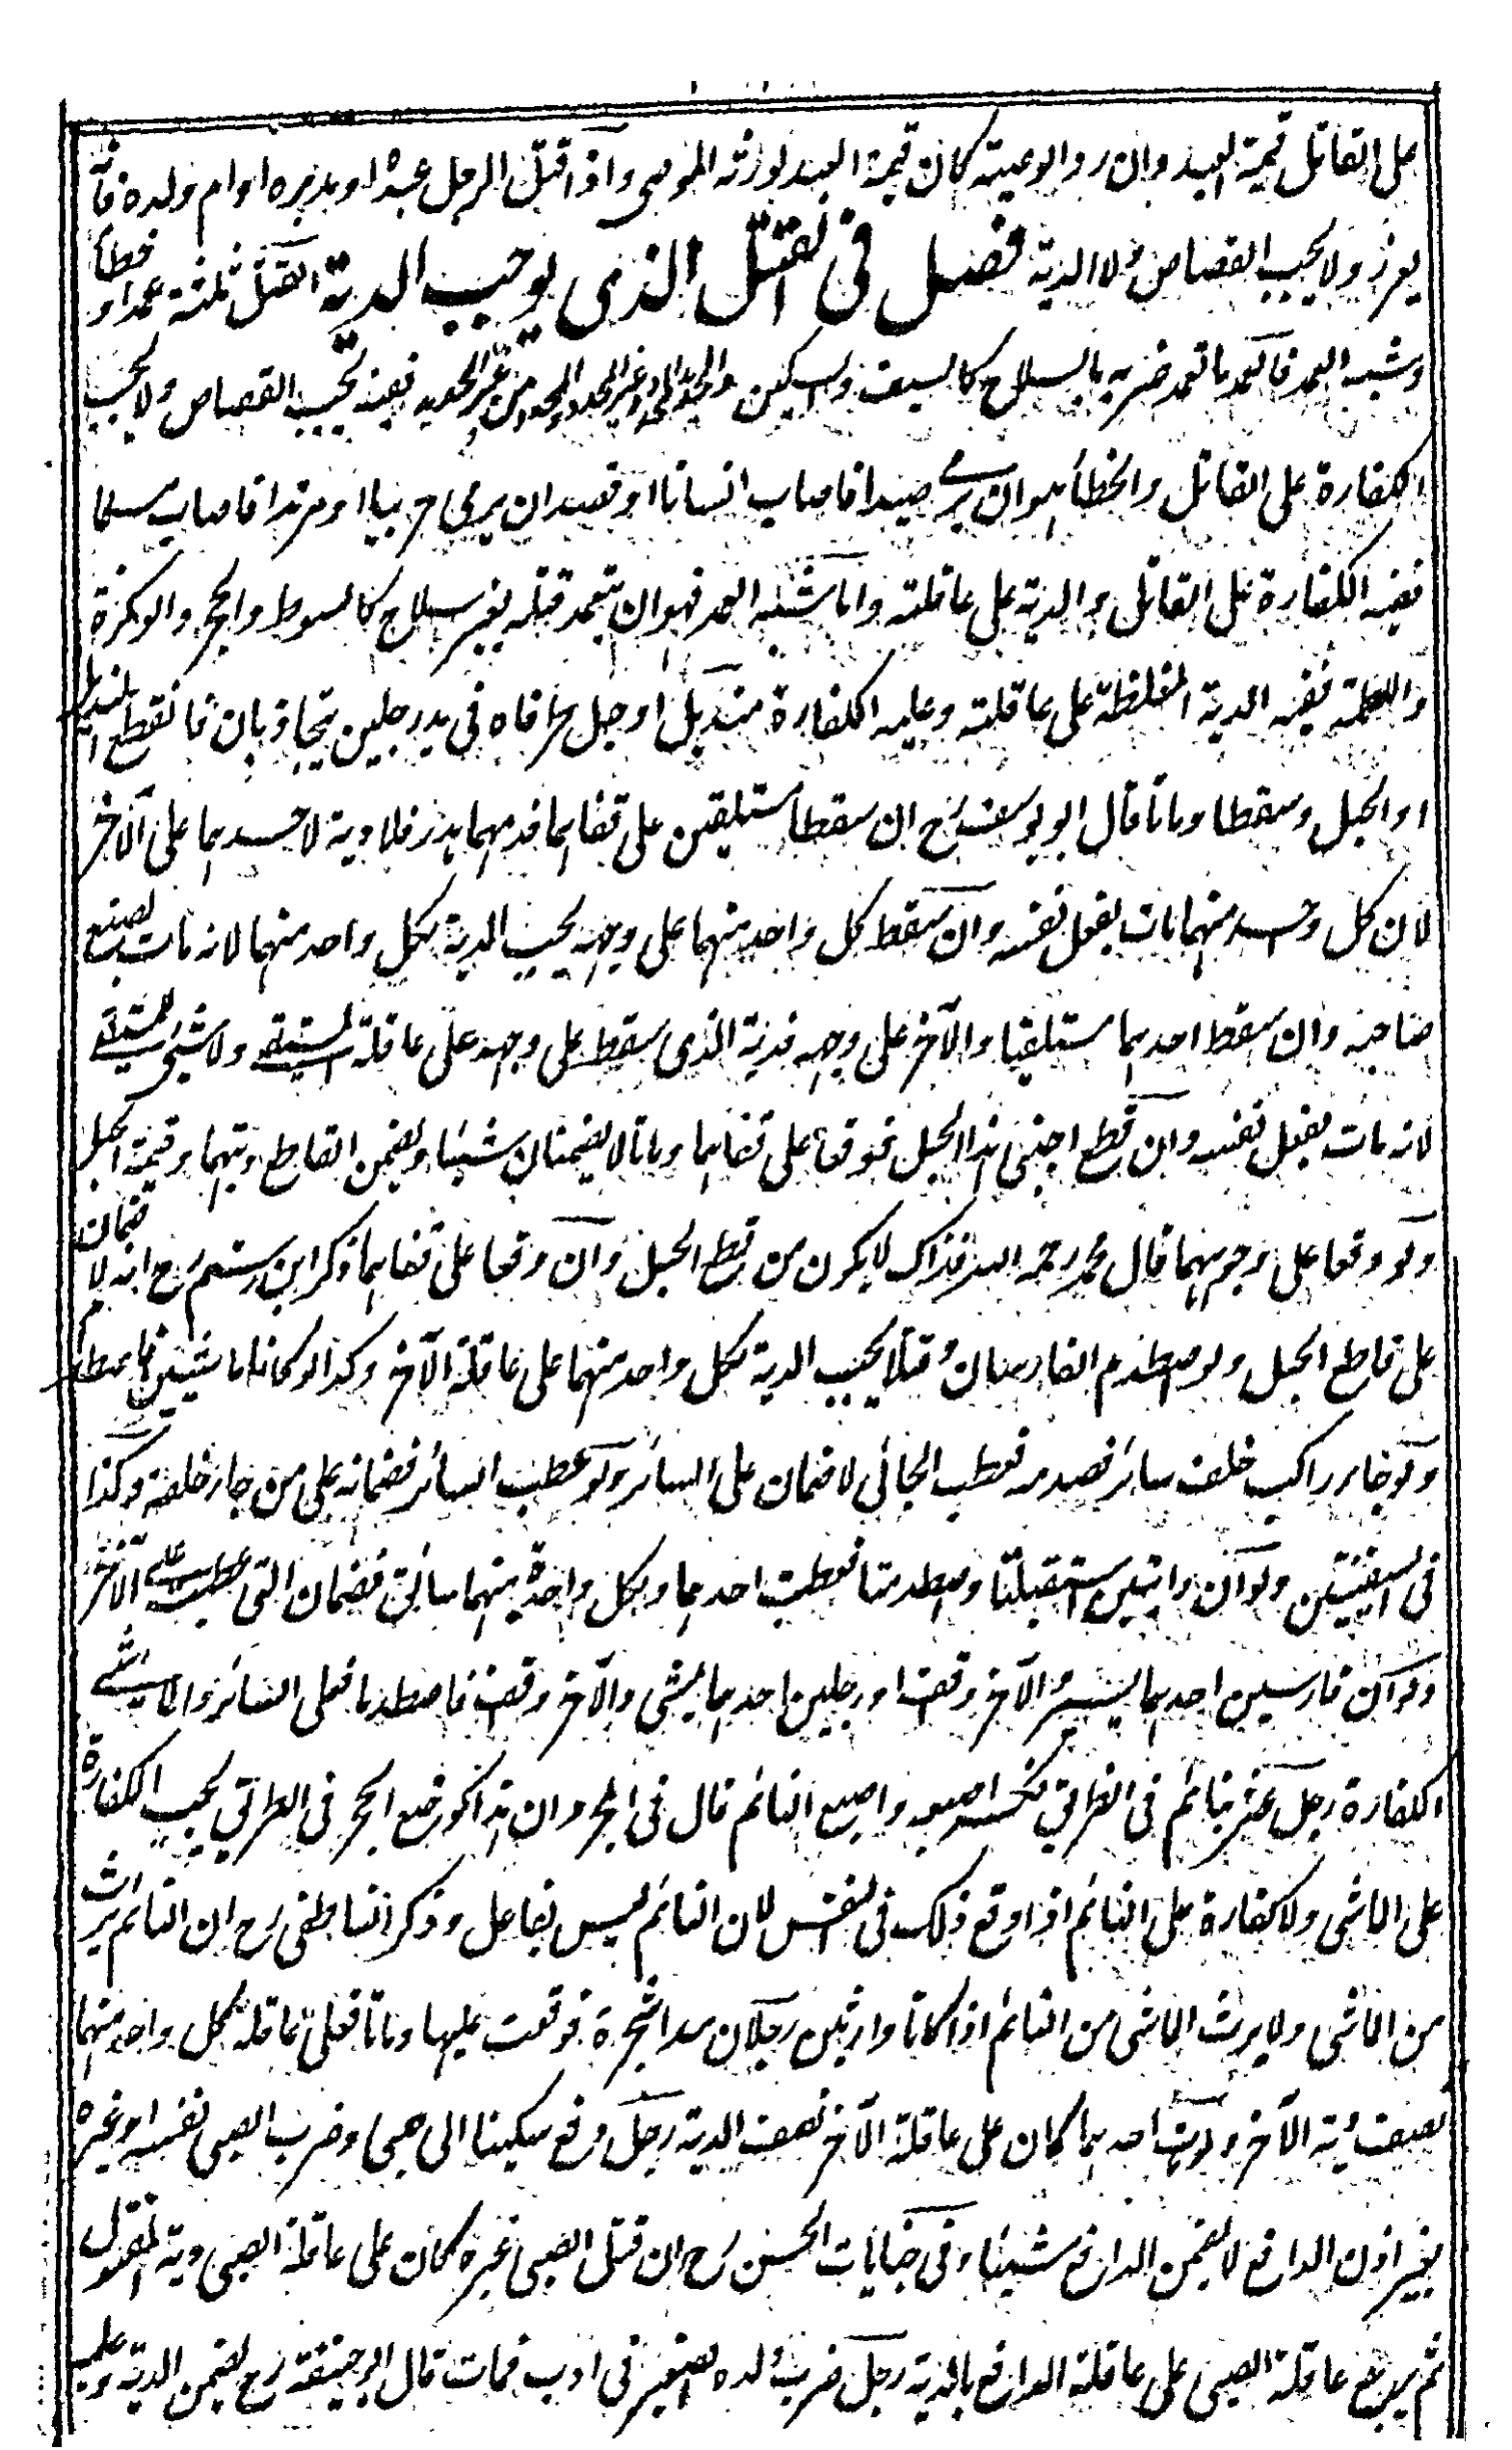 على القاتل قيمة العبد وان رد الوصية كان قيمة العبد لورثة الموصى واذا قتل الرجل عبده او مدبره او ام ولده فانه
يعزر ولا يجب القصاص ولا الدية فصل فى القتل الذى يوجب الدية القتل ثلثة عمد او خطأ
وشبه العمد فالعمد ما تعمد ضربه بالسلاح كالسيف والسكين من غير الحديد ففيه يجب القصاص ولا يجب
الكفارة على القاتل والخطأ هو ان يرمى صيدا فاصاب انسانا او قصد ان يرمى حربيا او مرتدا فاصاب مسلما
ففيه الكفارة على القاتل والدية على عاقلته واما شبه العمد فهو ان يتعمد قتله بغير سلاح كالسوط والحجر والوكزة
واللطمة ففيه الدية المغلظة على عاقلته وعليه الكفارة منديل او حبل طرفاه فى يد رجلين يتجاذبان فانقطع المنديل
او الحبل وسقطا وماتا قال ابو يوسف رح ان سقطا مستلقين على قفاهما فدمهما هدر فلا دية لاحدهما على الآخر
لان كل واحد منهما مات بفعل نفسه وان سقط كل واحد منهما على وجهه يجب الدية لكل واحد منهما لانه مات بصنع
صاحبه وان سقط احدهما مستلقيا والآخر على وجهه فدية الذى سقط على وجهه على عاقلة المستلقى ولا شئ للمستلقى
لانه مات بفعل نفسه وان قطع اجنبى هذا الحبل فوقعا على قفاهما وماتا لا يضمنان شيئا ويضمن القاطع ديتهما وقيمة الحبل
ولو وقعا على وجوههما قال محمد رحمه الله فذاك لا يكون من قطع الحبل وان وقعا على قفاهما ذكر ابن رستم رح انه لا ضمان
على قاطع الحبل ولو اصطدم الفارسان وقتلا يجب الدية لكل واحد منهما على عاقلة الآخر وكذا لو كانا ماشيين فاصطدما
ولو جاء راكب خلف سائر فصدمه فعطب الجائى لا ضمان على السائر ولو عطب السائر فضمانه على من جاء خلفه وكذا
فى السفينتين ولو ان دابتين استقبلتا واصطدمتا فعطبت احدهما ولكل واحدة منهما سائق فضمان التى عطبت على الآخر
ولو ان فارسين احدهما يسير والآخر وقف او رجلين احدهما يمشى والآخر وقف فاصطدما فعلى السائر والماشى
الكفارة رجل عثر بنائم فى الطريق فكسر اصبعه واصبع النائم قال فى المجرد ان هذا كوضع الحجر فى الطريق يجب الكفارة
على الماشى ولا كفارة على النائم اذا وقع ذلك فى النفس لان النائم ليس بفاعل وذكر الناطفى رح ان النائم يرث
من الماشى ولا يرث الماشى من النائم اذا كانا وارثين رجلان مدا شجرة فوقعت عليهما وماتا فعلى عاقلة كل واحد منهما
نصف دية الآخر ولو مات احدهما كان على عاقلة الآخر نصف الدية رجل دفع سكينا الى صبى وضرب الصبى نفسه او غيره
بغير اذن الدافع لا يضمن الدافع شيئا وفى جنايات الحسن رح ان قتل الصبى غيره كان على عاقلة الصبى دية المقتول
ثم يرجع عاقلة الصبى على عاقلة الدافع بالدية رجل ضرب ولده الصغير فى ادب فمات قال ابو حنيفة رح يضمن الدية وعليه